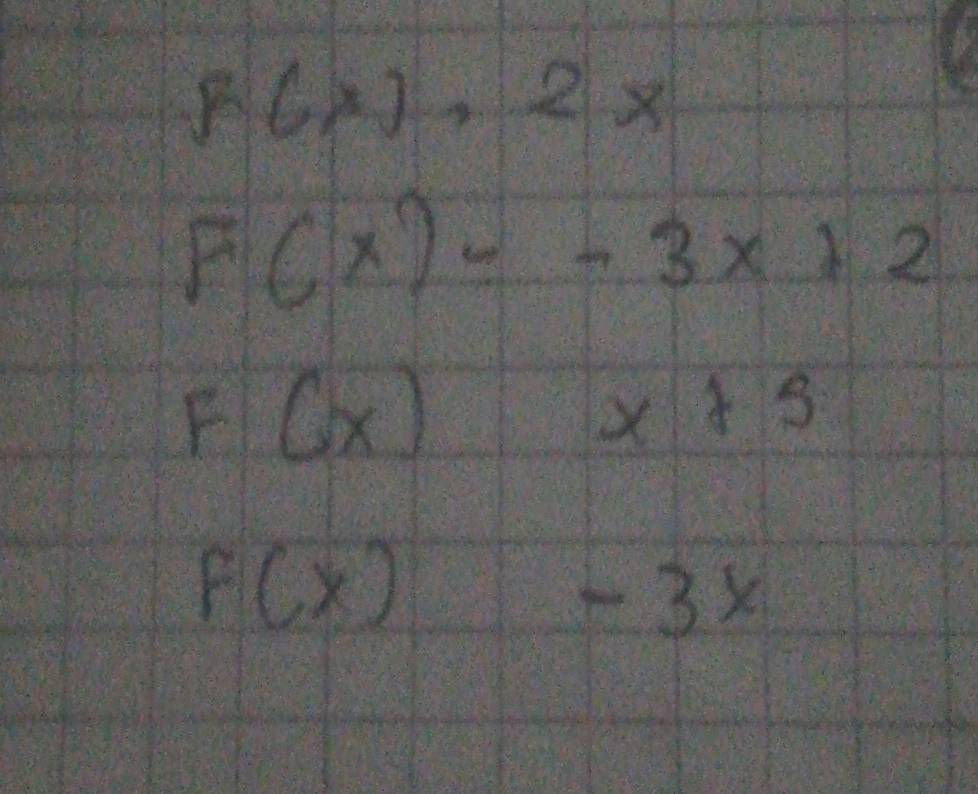 F(x) = 2x
F(x) = -3x + 2
F(x) x + 5
F(x) -3x